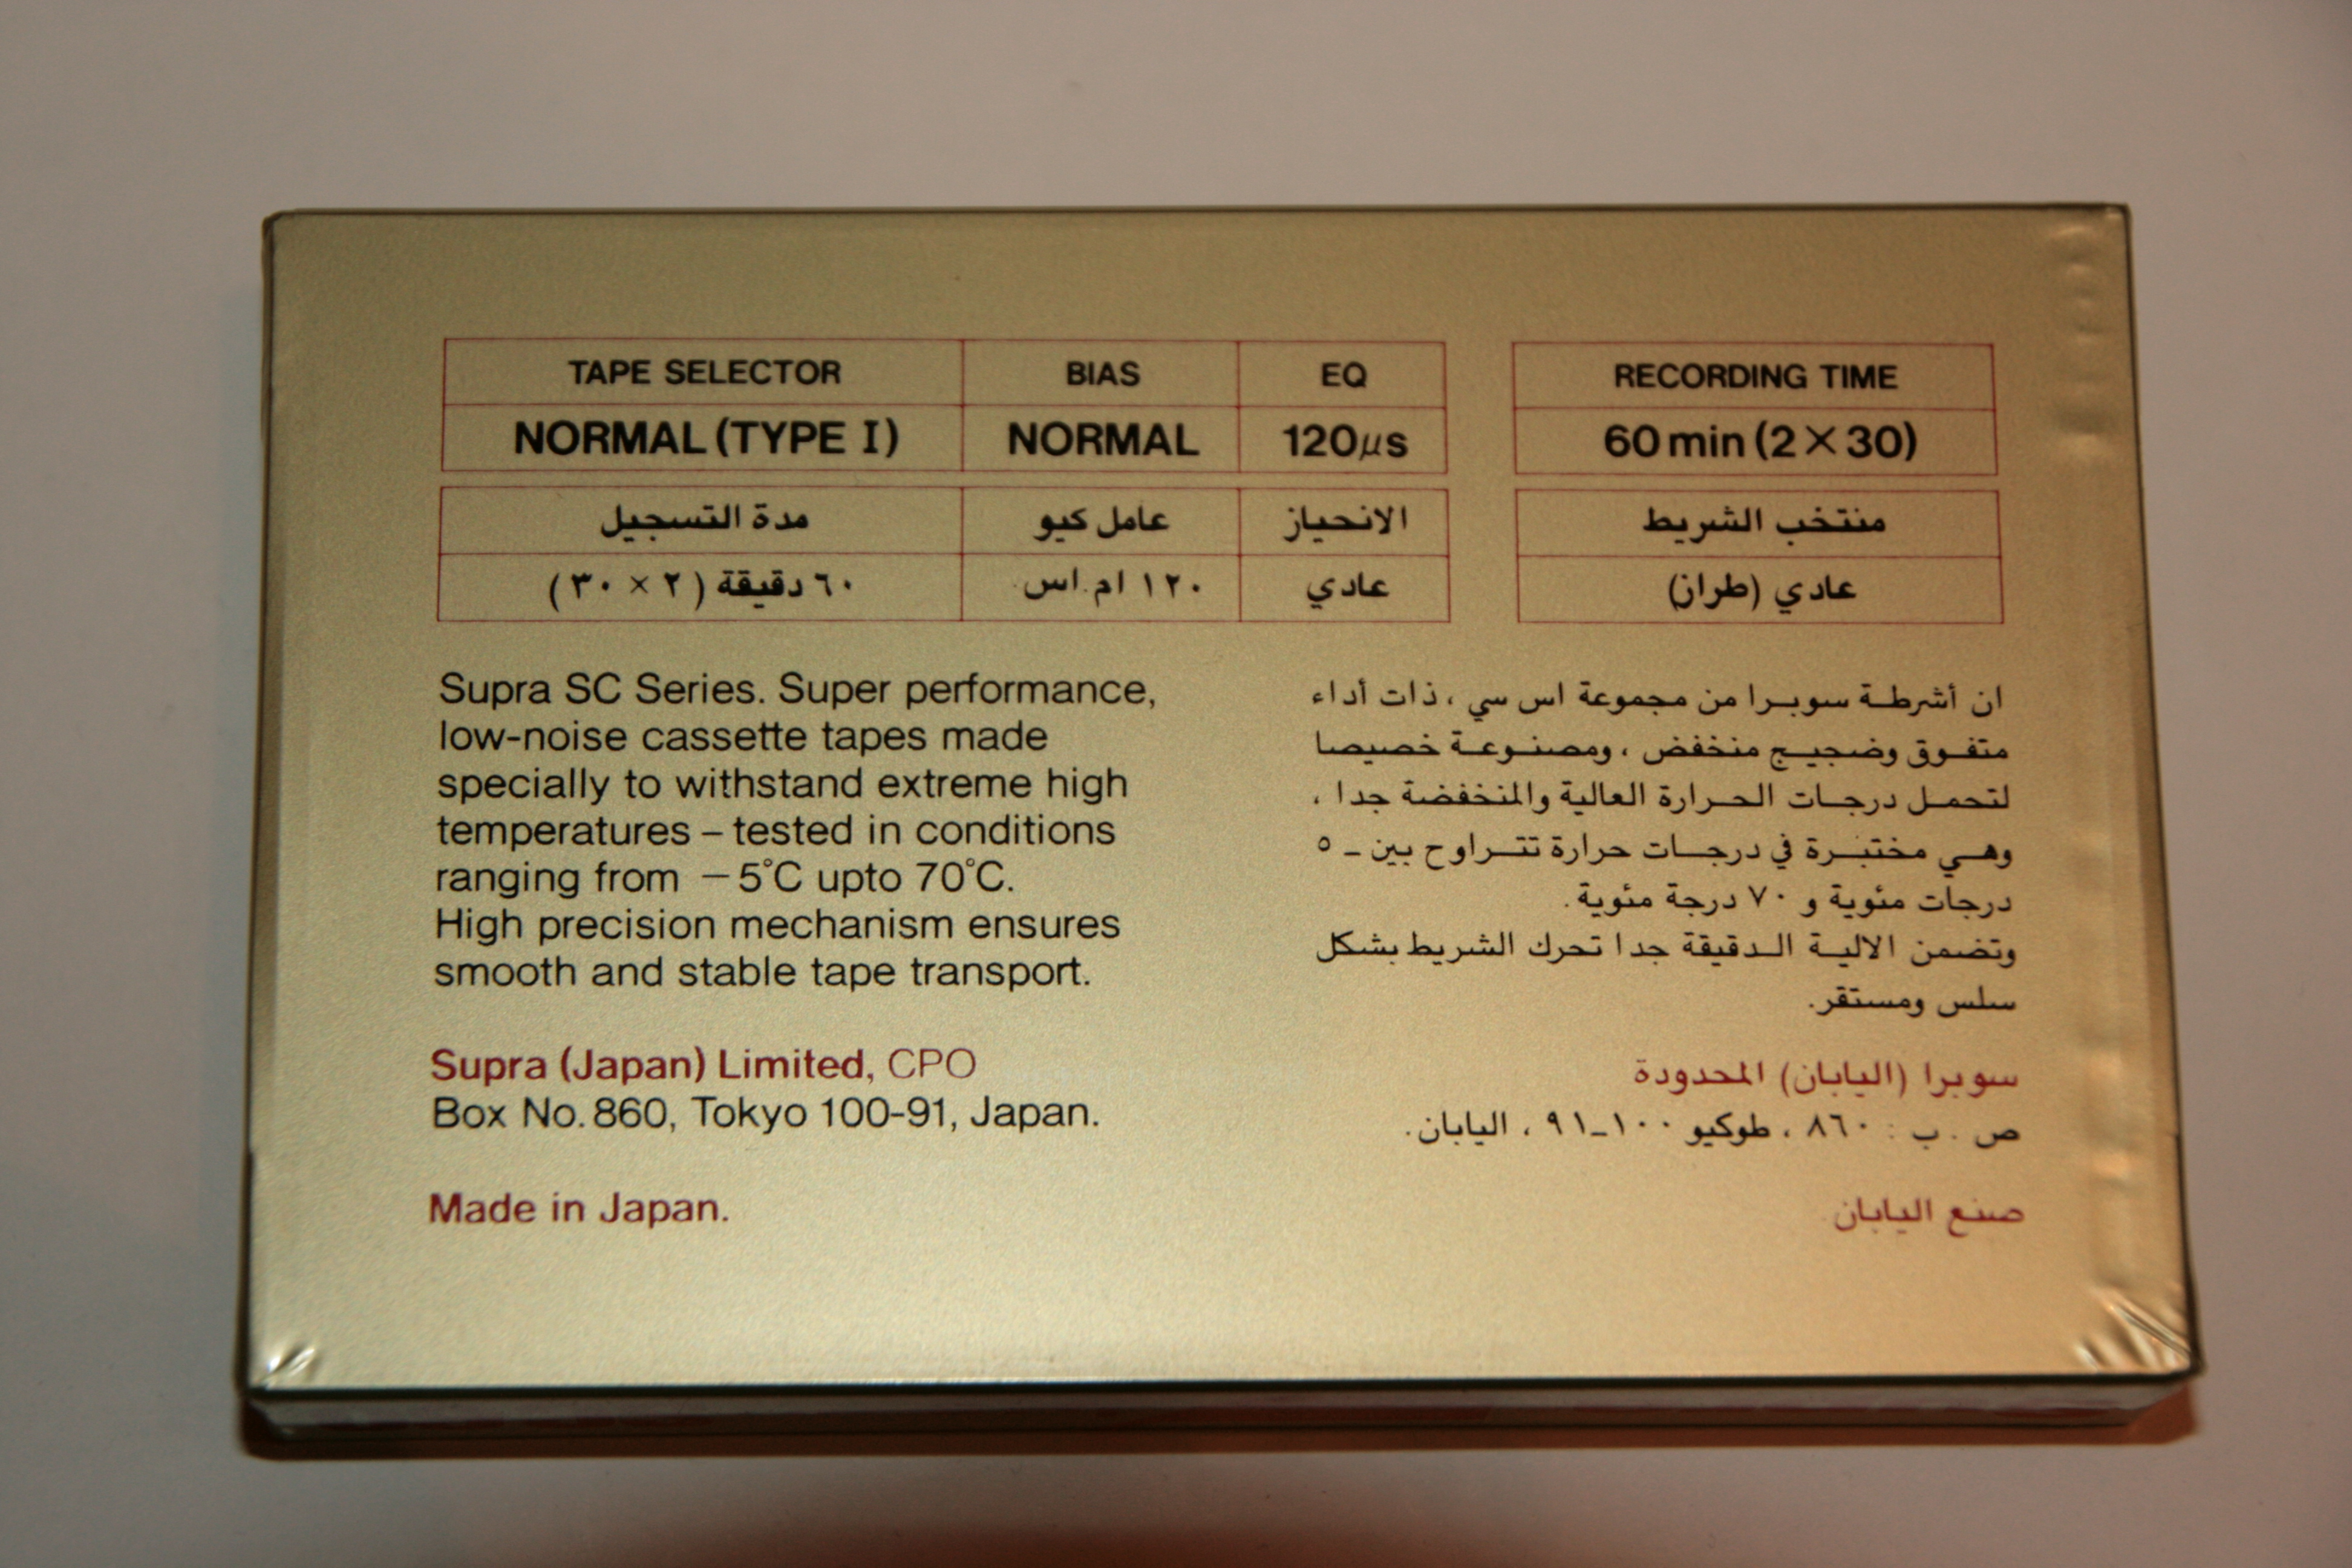 TAPE SELECTOR BIAS EQ RECORDING TIME
NORMAL (TYPE I) NORMAL 120µs 60 min (2 × 30)
منتخب الشريط الانحياز عامل كيو مدة التسجيل
عادي (طران) عادي ١٢٠ ام.اس. ٦٠ دقيقة (٢ × ٣٠)
Supra SC Series. Super performance,
low-noise cassette tapes made
specially to withstand extreme high
temperatures – tested in conditions
ranging from –5°C upto 70°C.
High precision mechanism ensures
smooth and stable tape transport.
Supra (Japan) Limited, CPO
Box No. 860, Tokyo 100-91, Japan.
Made in Japan.
ان أشرطة سوبرا من مجموعة اس سي ، ذات أداء
متفوق وضجيج منخفض ، ومصنوعة خصيصا
لتحمل درجات الحرارة العالية والمنخفضة جدا ،
وهي مختبرة في درجات حرارة تتراوح بين ـ ٥
درجات مئوية و ٧٠ درجة مئوية .
وتضمن الالية الدقيقة جدا تحرك الشريط بشكل
سلس ومستقر.
سوبرا (اليابان) المحدودة
ص . ب : ٨٦٠ ، طوكيو ١٠٠ـ٩١ ، اليابان.
صنع اليابان